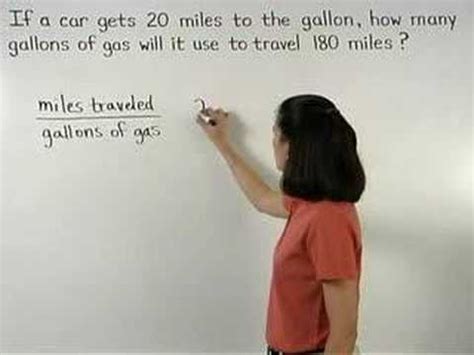 If a car gets 20 miles to the gallon, how many
gallons of gas will it use to travel 180 miles?
miles traveled
gallons of gas
2